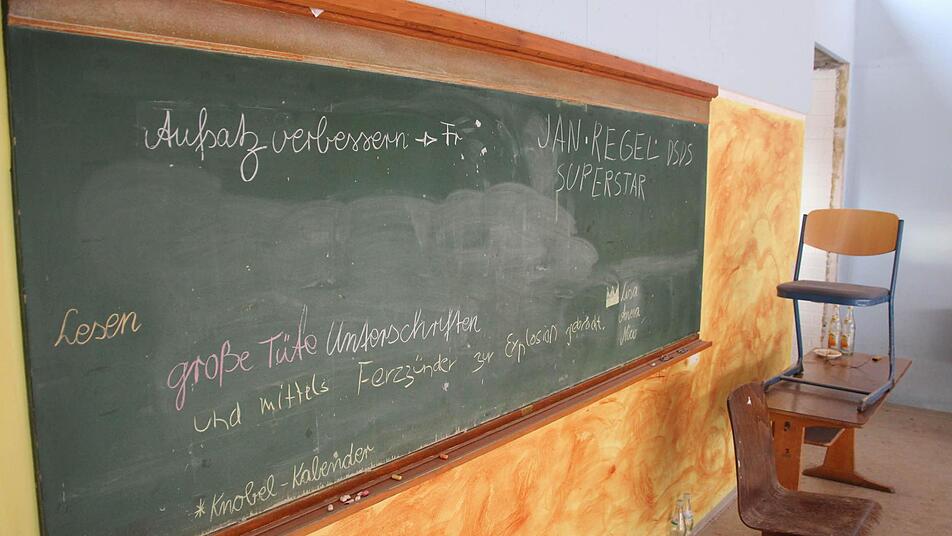 Aufsatz verbessern → Fr
JAN-REGEL DSDS
SUPERSTAR
Lesen
große Tüte Unterschriften
und mittels Fernzünder zur Explosion gebracht.
Lisa
*Knobel-Kalender